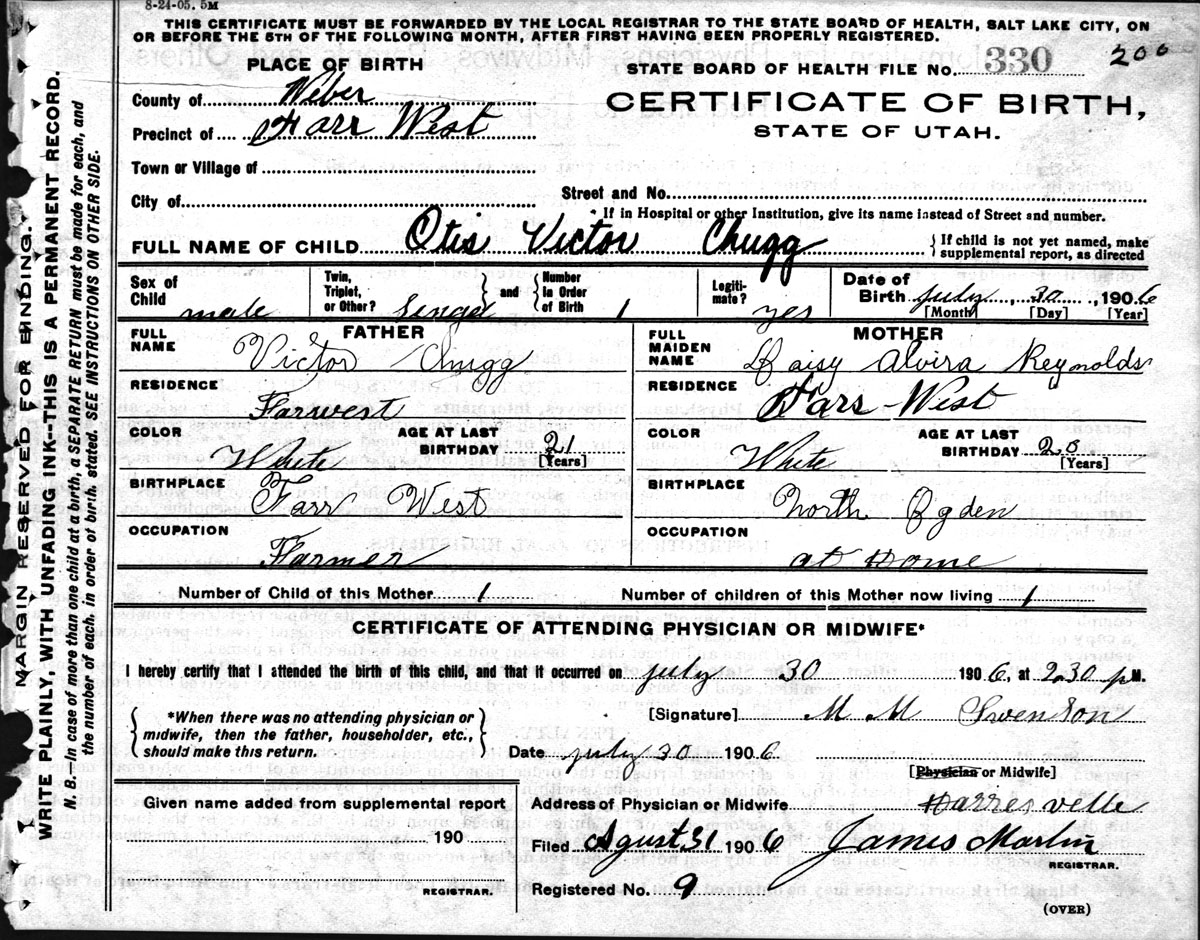 8-24-05. 5M
THIS CERTIFICATE MUST BE FORWARDED BY THE LOCAL REGISTRAR TO THE STATE BOARD OF HEALTH, SALT LAKE CITY, ON
OR BEFORE THE 5TH OF THE FOLLOWING MONTH, AFTER FIRST HAVING BEEN PROPERLY REGISTERED.
200
PLACE OF BIRTH
STATE BOARD OF HEALTH FILE No. 330
County of Weber
CERTIFICATE OF BIRTH,
Precinct of Farr West
STATE OF UTAH.
Town or Village of
City of
Street and No.
* If in Hospital or other Institution, give its name instead of Street and number.
FULL NAME OF CHILD Otis Victor Chugg
If child is not yet named, make
supplemental report, as directed
Sex of Child male
Twin, Triplet, or Other? Singel
and
Number in Order of Birth 1
Legitimate? yes
Date of Birth July, 30, 1906
[Month] [Day] [Year]
FATHER
FULL NAME Victor Chugg
RESIDENCE
Farwest
COLOR White
AGE AT LAST BIRTHDAY 21
[Years]
BIRTHPLACE
Farr West
OCCUPATION
Farmer
MOTHER
FULL MAIDEN NAME Daisy Alvira Reynolds
RESIDENCE
Farr-West
COLOR White
AGE AT LAST BIRTHDAY 20
[Years]
BIRTHPLACE
North Ogden
OCCUPATION
at Home
Number of Child of this Mother 1
Number of children of this Mother now living 1
CERTIFICATE OF ATTENDING PHYSICIAN OR MIDWIFE*
I hereby certify that I attended the birth of this child, and that it occurred on July 30 1906, at 2.30 p M.
*When there was no attending physician or
midwife, then the father, householder, etc.,
should make this return.
[Signature] M M Swenson
Date july 30 1906
[Physician or Midwife]
Given name added from supplemental report
190
REGISTRAR.
Address of Physician or Midwife Harresvelle
Filed Agust 31 1906 James Martin
REGISTRAR.
Registered No. 9
(OVER)
MARGIN RESERVED FOR BINDING.
WRITE PLAINLY, WITH UNFADING INK--THIS IS A PERMANENT RECORD.
N. B.--In case of more than one child at a birth, a SEPARATE RETURN must be made for each, and
the number of each, in order of birth, stated. SEE INSTRUCTIONS ON OTHER SIDE.